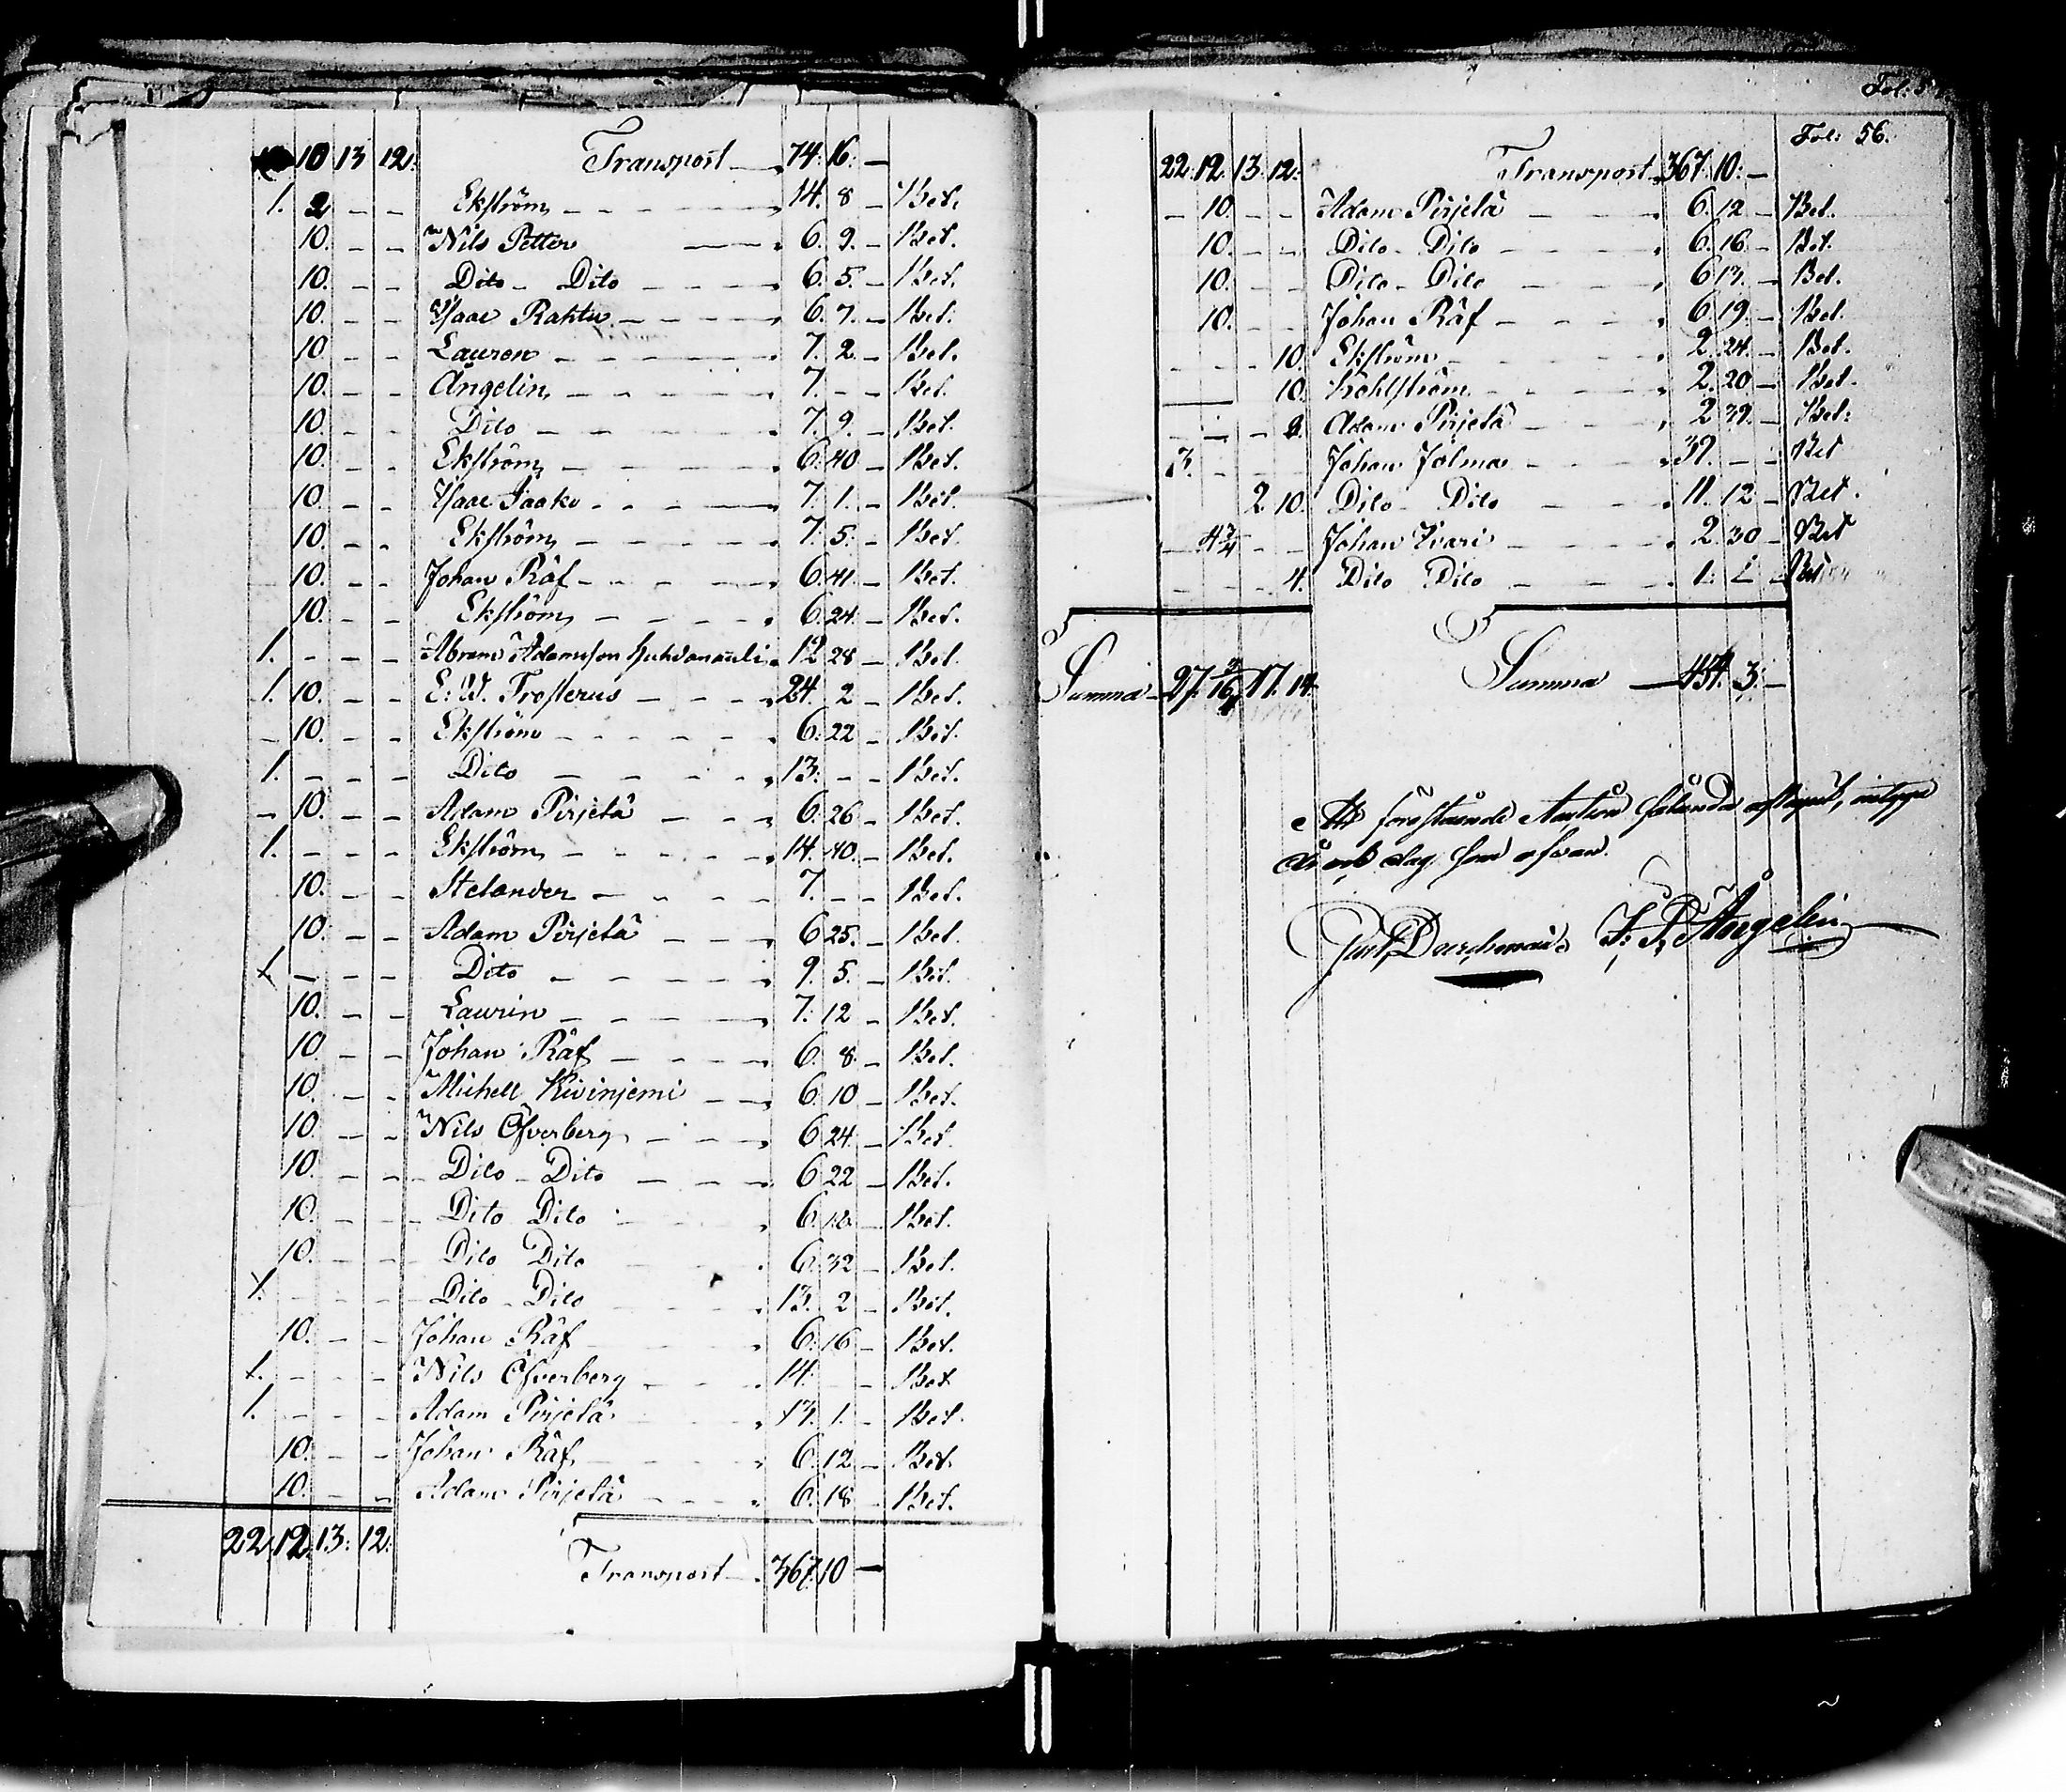 10 13 12. Transport 74. 16. —
1. 2 – – Ekström 14. 8 – Bet.
10. – – Nils Petter 6. 9. – Bet.
10. – – Dito – Dito 6. 5. – Bet.
10. – – Isaac Rahtu 6. 7. – Bet.
10. – – Lauren 7. 2. – Bet.
10. – – Ångelin 7. – – Bet.
10. – – Dito 7. 9. – Bet.
10. – – Ekström 6. 40 – Bet.
10. – – Isaac Jaako 7. 1. – Bet.
10. – – Ekström 7. 5. – Bet.
10. – – Johan Räf 6. 41. – Bet.
10. – – Ekström 6. 24. – Bet.
1. – – – Abram Adamsson 12 28 – Bet.
1. 10. – – E. W. Frosterus 24. 2 – Bet.
– 10. – – Ekström 6. 22 – Bet.
1. – – – Dito 13. – – Bet.
– 10. – – Adam Pirjetä 6. 26 – Bet.
1. – – – Ekström 14. 40. – Bet.
10. – – Stelander 7. – – Bet.
10. – – Adam Pirjetä 6 25. – Bet.
1. – – – Dito 9. 5. – Bet.
10. – – Laurin 7. 12 – Bet.
10 – – Johan Räf 6. 8. – Bet.
10. – – Michell Kivinjemi 6. 10 – Bet.
10. – – Nils Öfverberg 6 24. – Bet.
10. – – Dito – Dito 6 22 – Bet.
10. – – Dito Dito 6. – Bet.
10. – – Dito Dito 6. 32 – Bet.
1. – – – Dito – Dito 13. 2 – Bet.
10. – – Johan Räf 6. 16 – Bet.
1. – – – Nils Öfverberg 14. – Bet
1. – – – Adam Pirjetä 13. 1. – Bet.
10. – – Johan Räf 6. 12 – Bet.
10. – – Adam Pirjetä 6. 18 – Bet.
22. 12. 13. 12. Transport 367. 10 —
Fol. 56.
22. 12. 13. 12. Transport 367. 10. —
– 10. – – Adam Pirjetä 6. 12 – Bet.
10. – – Dito – Dito 6. 16. – Bet.
10. – – Dito – Dito 6 13. – Bet.
10. – – Johan Räf 6. 19. – Bet.
– – – 10. Ekström 2. 24. – Bet.
10. Kohlström 2. 20 – Bet.
– – – Adam Pirjetä 2 39. – Bet.
3. – – – Johan Jolma 39. – – Bet
2 10. Dito Dito 11. 12 – Bet.
– 4 3/4 – – Johan Ivari 2. 30 – Bet
– – – 4. Dito Dito 1. 1. – Bet
Summa 27. 16 3/4 17. 14. Summa 454. 3. —
Att förestående Auktion sålunda aflupit, intyga
år och dag som ofvan.
J. P. Ångelin